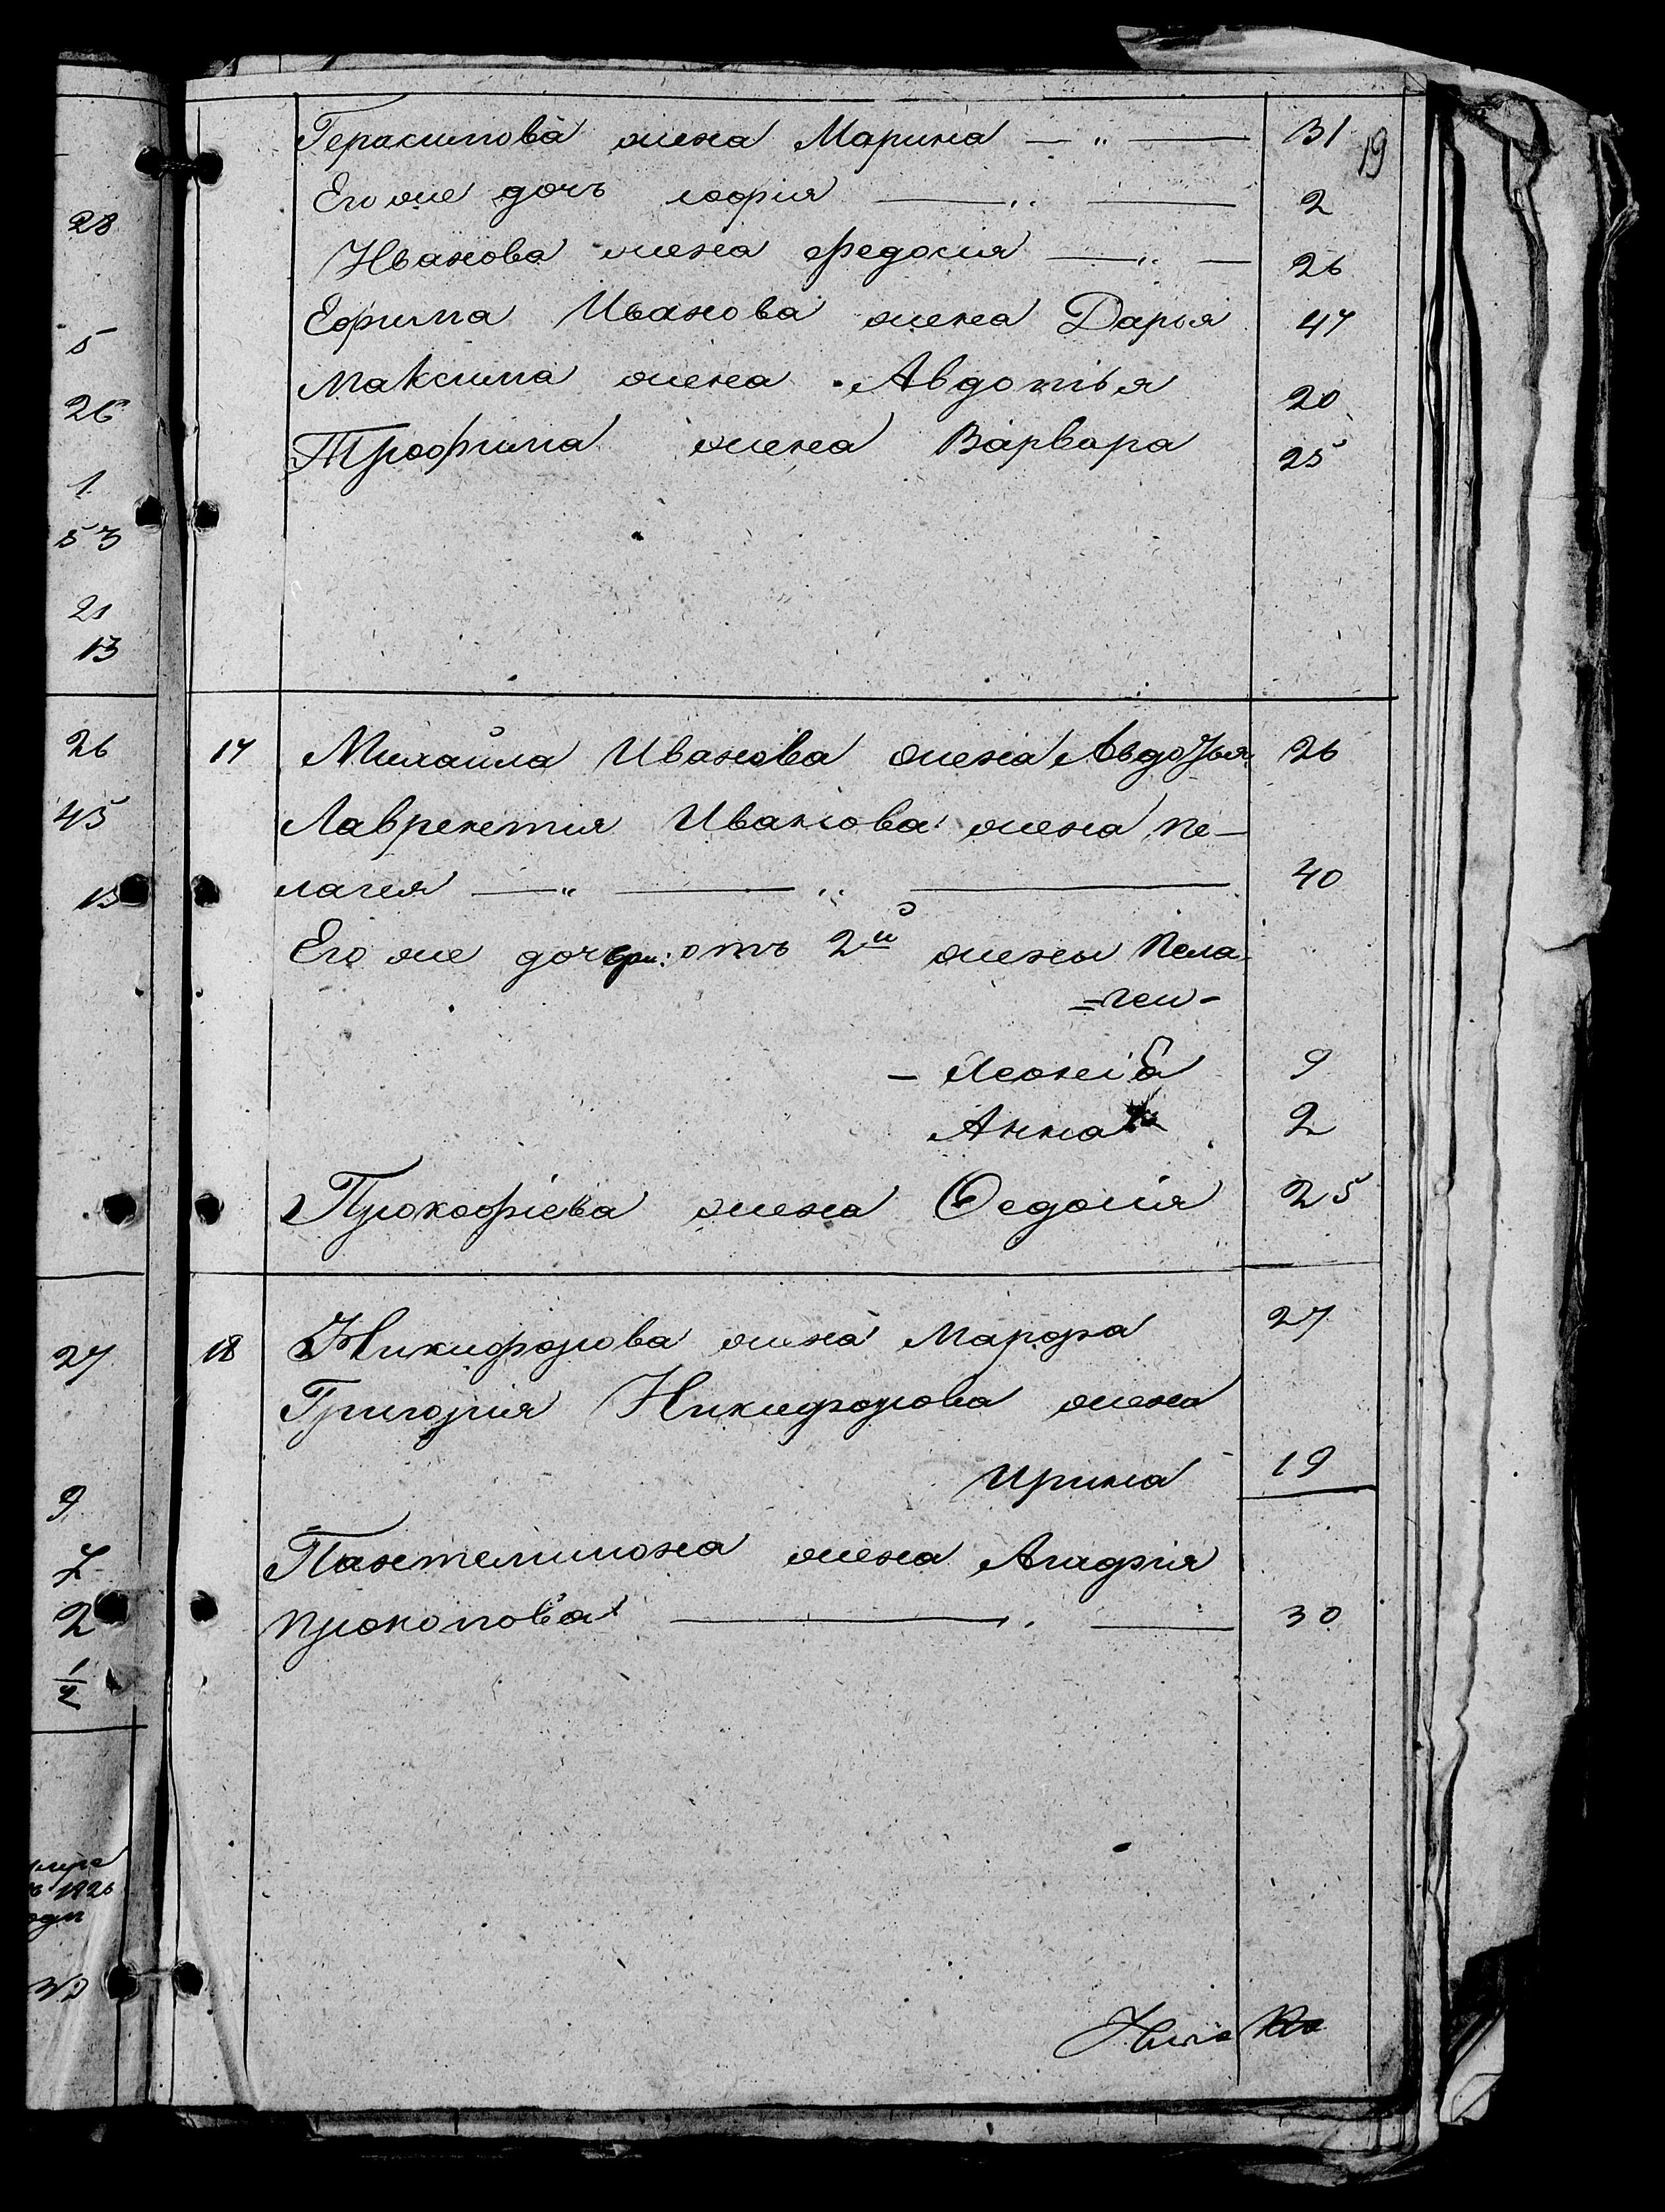 19
Герасимова жена Марина — „ — 31
Его же дочь софия — „ — 2
Иванова жена федосия — „ — 26
Ефима Иванова жена Дарья 47
Максима жена Авдотья 20
Трофима жена Варвара 25
17 Михайла Иванова жена Авдотья 26
Лаврентия Иванова жена пе-
лагея — „ — „ — 40
Его же дочери: отъ 2й жены Пела
=геи-
- Ксенія 9
Анна 2
Прокофіева жена Федосія 25
18 Никифорова жена Марфа 27
Григория Никифорова жена
Ирина 19
Пантелимона жена Агафия
прокопова — „ — 30
28
5
26
1
53
21
13
26
45
13
27
9
7
2
1/2
1826
30